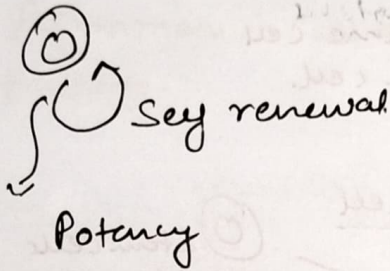 Self renewal
Potency